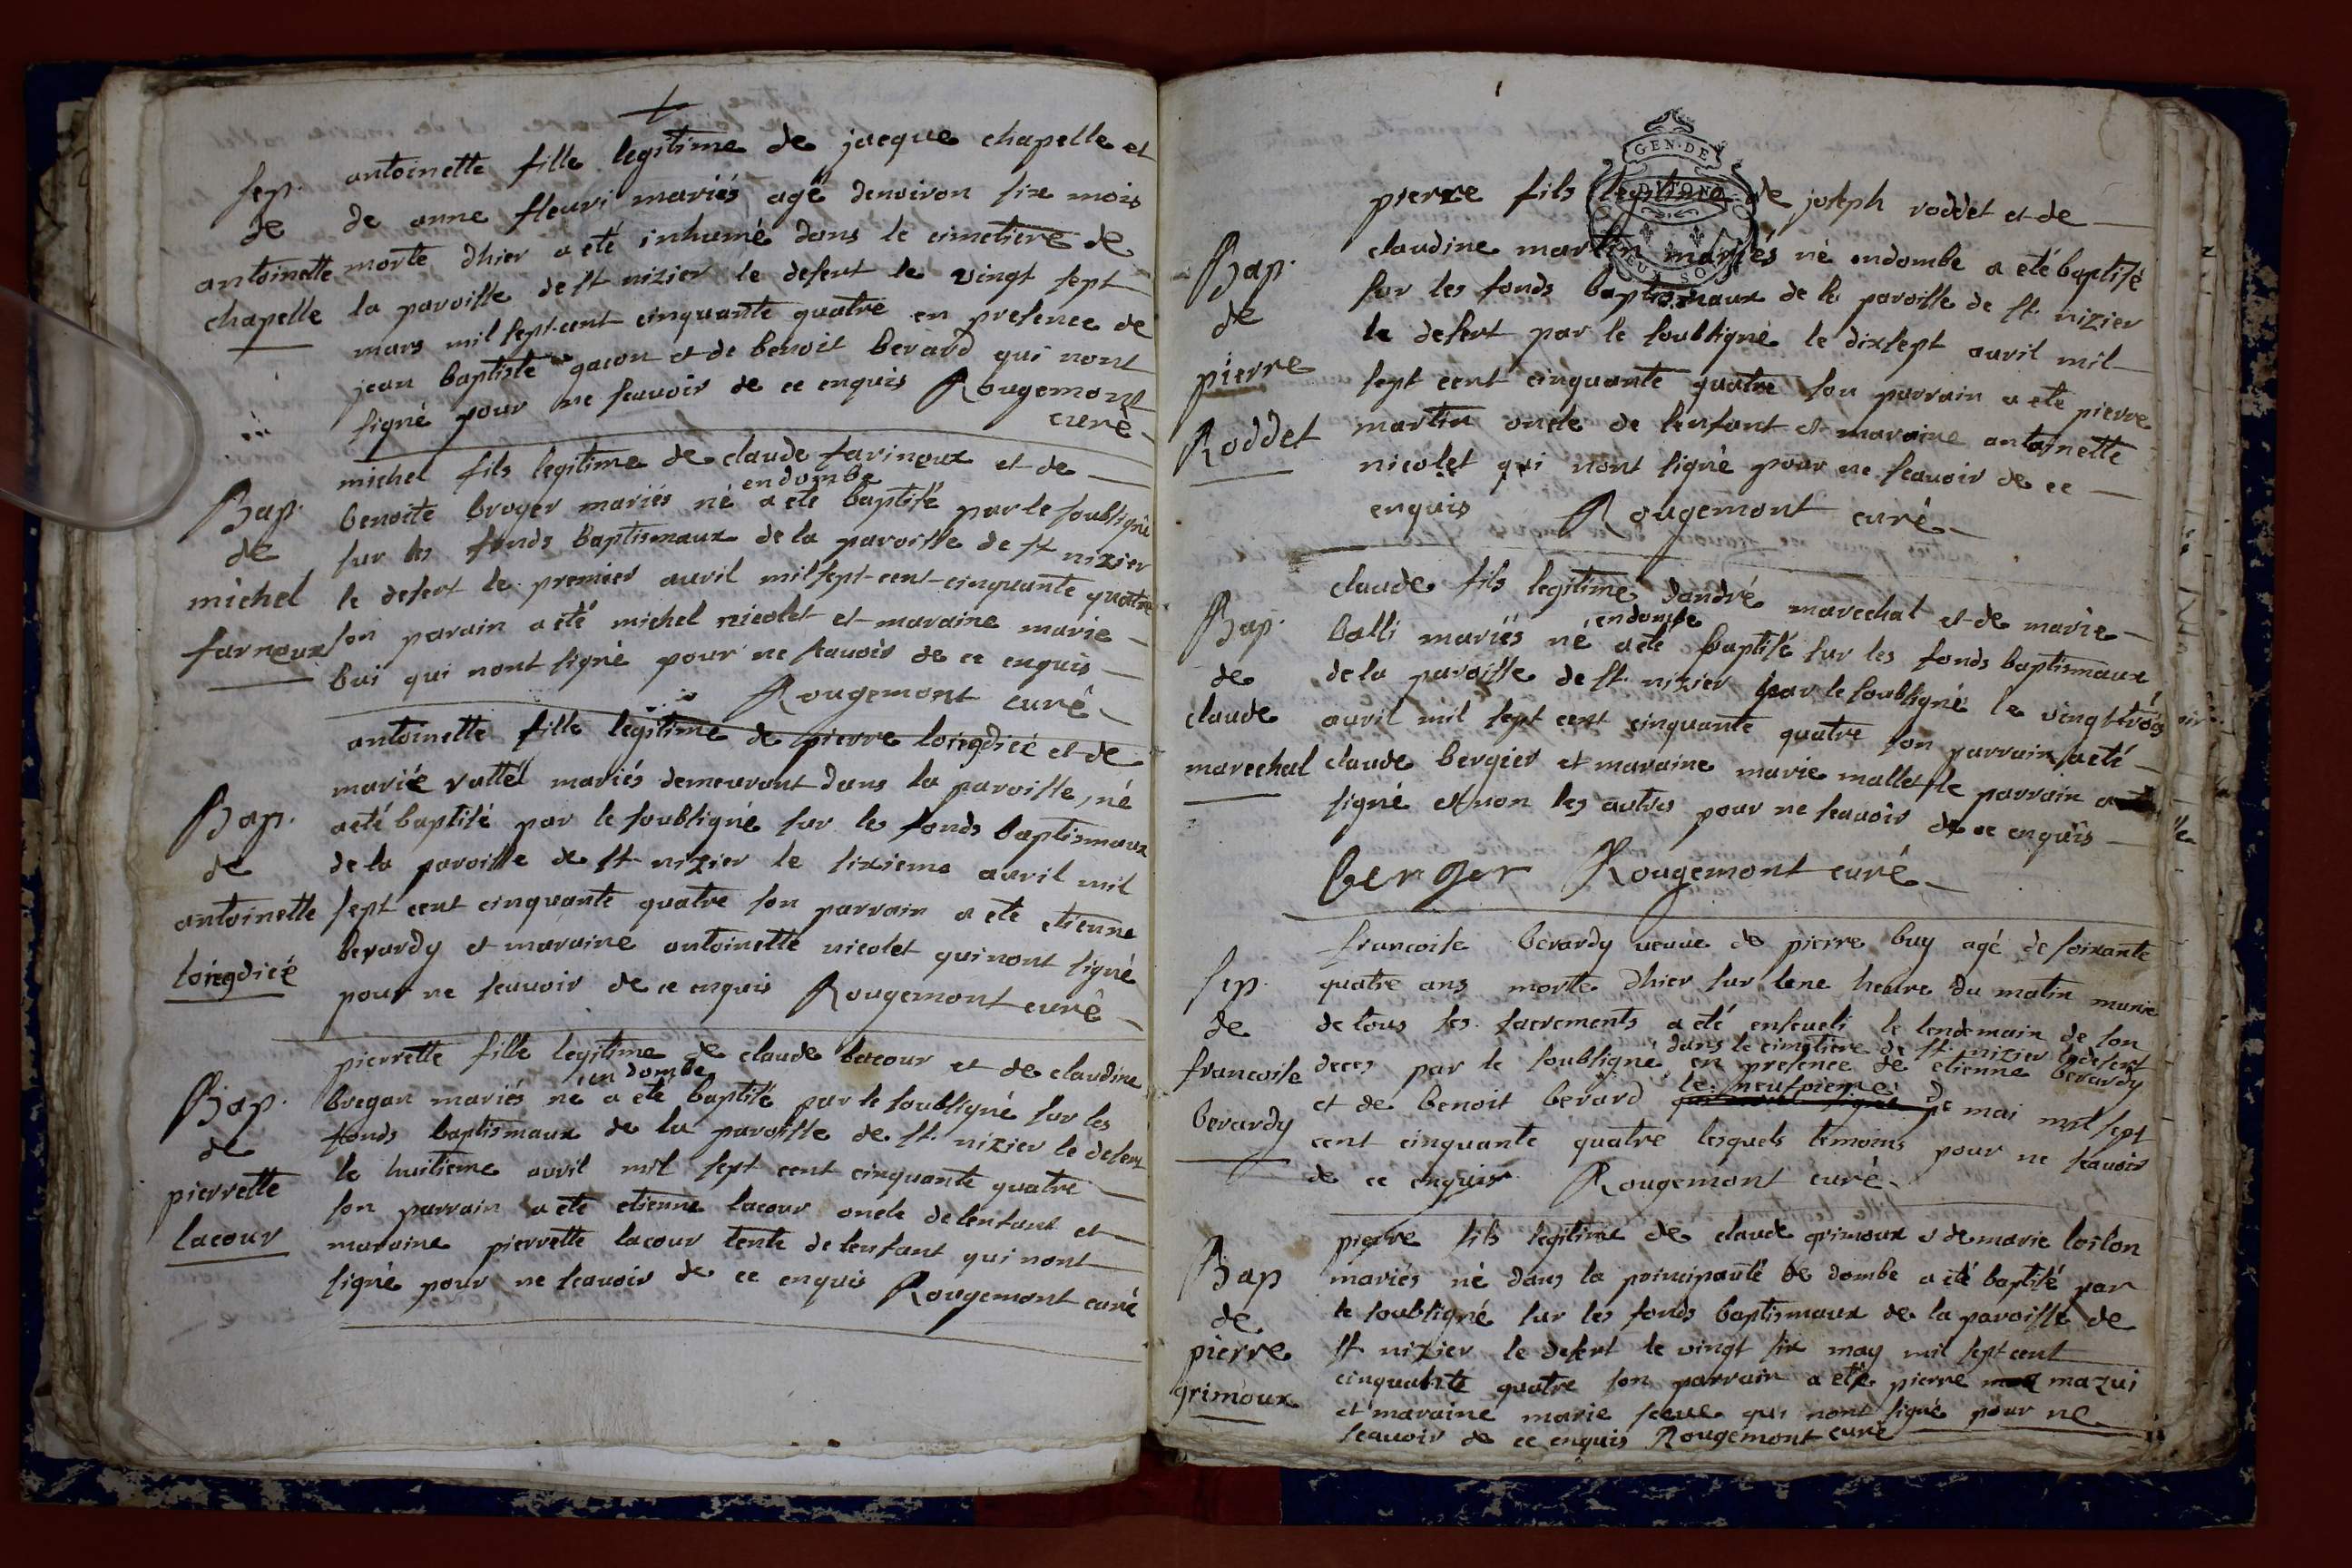 Sep.
de
antoinette
chapelle
antoinette fille legitime de jacque chapelle et
de anne fleuri mariés agé denviron six mois
morte dhier a eté inhumé dans le cimetiere de
la paroisse de st nizier le desert le vingt sept
mars mil sept-cent cinquante quatre en presence de
jean baptiste gacon et de benoit berard qui nont
signé pour ne scavoir de ce enquis Rougemont
curé
Bap.
de
michel
farnoux
michel fils legitime de claude farinoux et de
endombe
benoite broyer mariés né a eté baptisé par le soubsigné
sur les fonds baptismaux de la paroisse de st nizier
le desert le premier avril mil sept-cent-cinquante quatre
son parain a eté michel nicolet et maraine marie
bui qui nont signé pour ne scavoir de ce enquis
Rougemont curé
Bap.
de
antoinette
loiegdieé
antoinette fille legitime de pierre loiegdieé et de
marie vattél mariés demeurant dans la paroisse, né
a eté baptisé par le soubsigné sur les fonds baptismaux
de la paroisse de st nizier le sixieme avril mil
sept cent cinquante quatre son parrain a eté etienne
berardy et maraine antoinette nicolet qui nont signé
pour ne scavoir de ce enquis Rougemont curé
Bap.
de
pierrette
lacour
pierrette fille legitime de claude lacour et de claudine
en dombe
bregan mariés né a eté baptisé par le soubsigné sur les
fonds baptismaux de la paroisse de st. nizier le desert
le huitieme avril mil sept cent cinquante quatre
son parrain a eté etienne lacour oncle de lenfant et
maraine pierrette lacour tente de lenfant qui nont
signé pour ne scavoir de ce enquis Rougemont curé
GEN. DE
Bap.
de
pierre
Roddet
pierre fils legitime de joseph roddet et de
claudine martin mariés né endombe a eté baptisé
sur les fonds baptismaux de la paroisse de st. nizier
le desert par le soubsigné le dixsept avril mil
sept cent cinquante quatre son parrain a eté pierre
martin oncle de lenfant et maraine antoinette
nicolet qui nont signé pour ne scavoir de ce
enquis Rougemont curé
Bap.
de
claude
marechal
claude fils legitime dandré marechal et de marie
endombe
balli mariés né a eté baptisé sur les fonds baptismaux
de la paroisse de st. nizier par le soubsigné le vingt-trois
avril mil sept cent cinquante quatre son parrain a eté
claude bergier et maraine marie mallet le parrain a
signé et non les autres pour ne scavoir de ce enquis
berger Rougemont curé
Sep.
de
francoise
berardy
francoise berardy veuve de pierre buy agé de soixante
quatre ans morte dhier sur lene heure du matin munie
de tous ses sacrements a eté enseveli le lendemain de son
dans le cimetiere de st. nizier le desert
deces par le soubsigné en presence de etienne berardy
le neufvieme
et de benoit berard de mai mil sept
cent cinquante quatre lesquels temoins pour ne scavoir
de ce enquis Rougemont curé
Bap
de
pierre
grimoux
pierre fils legitime de claude grimoux et de marie loison
mariés né dans la principauté de dombe a eté baptisé par
le soubsigné sur les fonds baptismaux de la paroisse de
st nizier le desert le vingt six may mil sept cent
cinquante quatre son parrain a eté pierre mazui
et maraine marie seeve qui nont signé pour ne
scavoir de ce enquis Rougemont curé